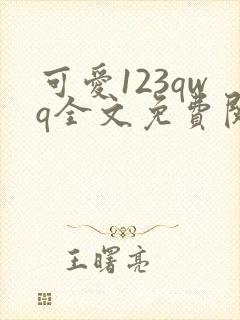 可愛123qw
q全文免費閱
王曙亮